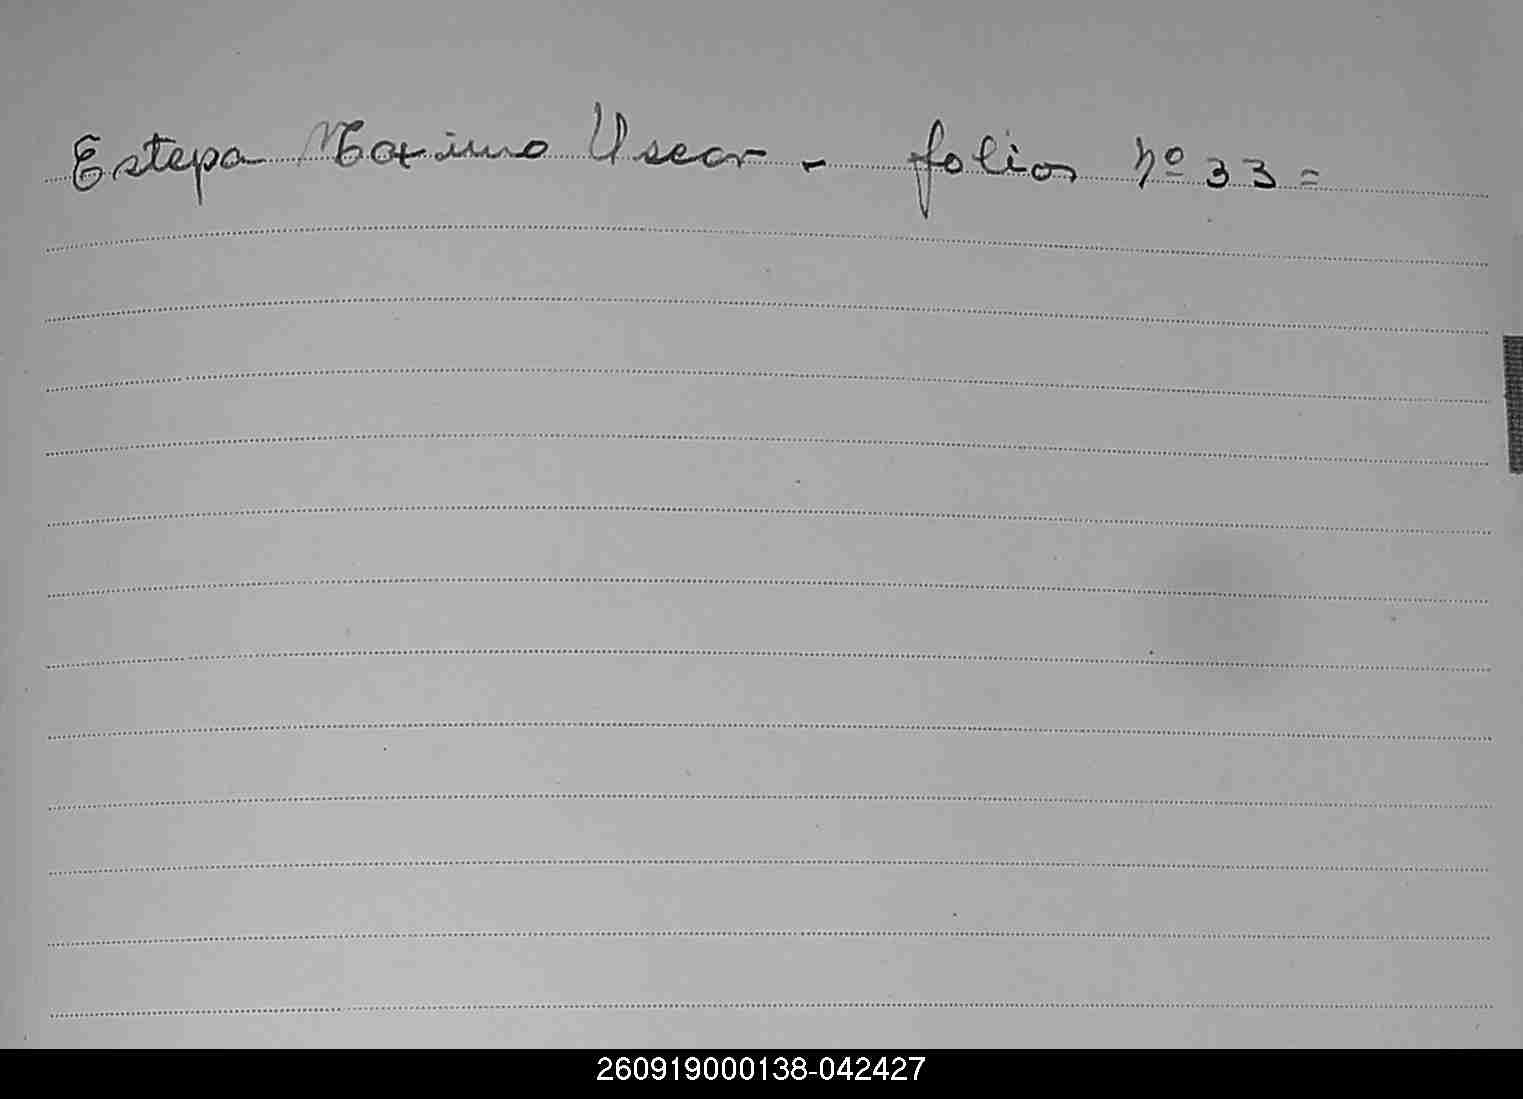 Estepa Maximo Oscar - folios nº 33 =
260919000138-042427